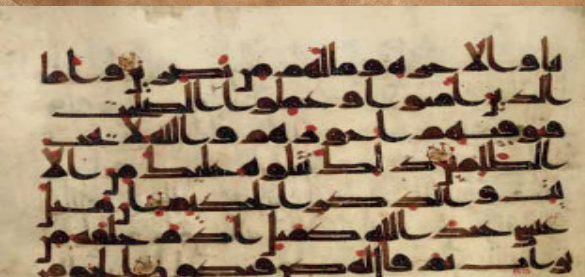 يا والاخره وما لهم من نصرين واما
الذين امنوا وعملوا الصلحت
فيوفيهم اجورهم والله لا يحب
الظلمين ذلك نتلوه عليك من الا
يت والذكر الحكيم ان مثل
عيسى عند الله كمثل ادم خلقه من
تراب ثم قال له كن فيكون الحق من